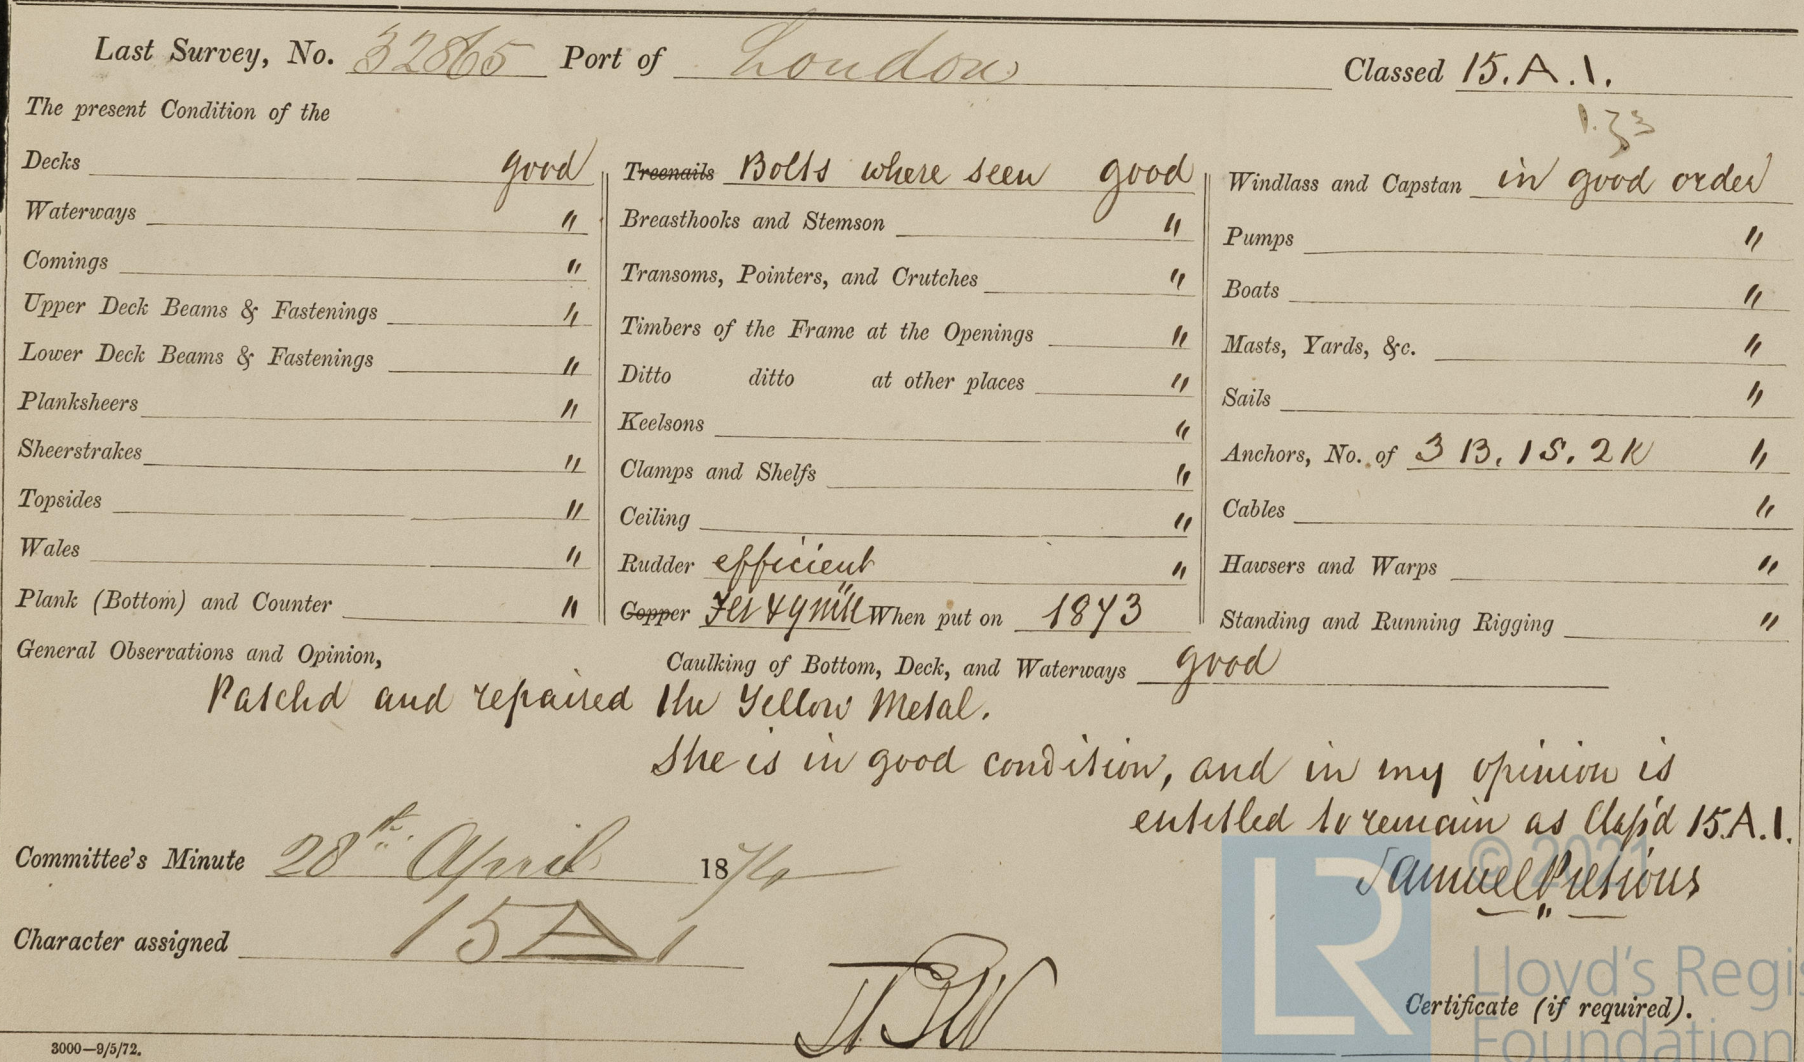 Last Survey, No. 32865 Port of London Classed 15.A.1.
The present Condition of the 1.73
Decks good
Waterways "
Comings "
Upper Deck Beams & Fastenings "
Lower Deck Beams & Fastenings "
Planksheers "
Sheerstrakes "
Topsides "
Wales "
Plank (Bottom) and Counter "
Treenails Bolts where seen good
Breasthooks and Stemson "
Transoms, Pointers, and Crutches "
Timbers of the Frame at the Openings "
Ditto ditto at other places "
Keelsons "
Clamps and Shelfs "
Ceiling "
Rudder efficient "
Copper Felt & YMtl When put on 1873
Windlass and Capstan in good order
Pumps "
Boats "
Masts, Yards, &c. "
Sails "
Anchors, No. of 3 B. 1 S. 2 K "
Cables "
Hawsers and Warps "
Standing and Running Rigging "
General Observations and Opinion, Caulking of Bottom, Deck, and Waterways good
Patchd and repaired the Yellow Metal.
She is in good condition, and in my opinion is
entitled to remain as Class'd 15.A.1.
Samuel Pretious
Committee's Minute 28th April 1874
Character assigned 15 A 1
Certificate (if required).
3000—9/5/72.
© 2021
LR
Lloyd's Regis
Foundation